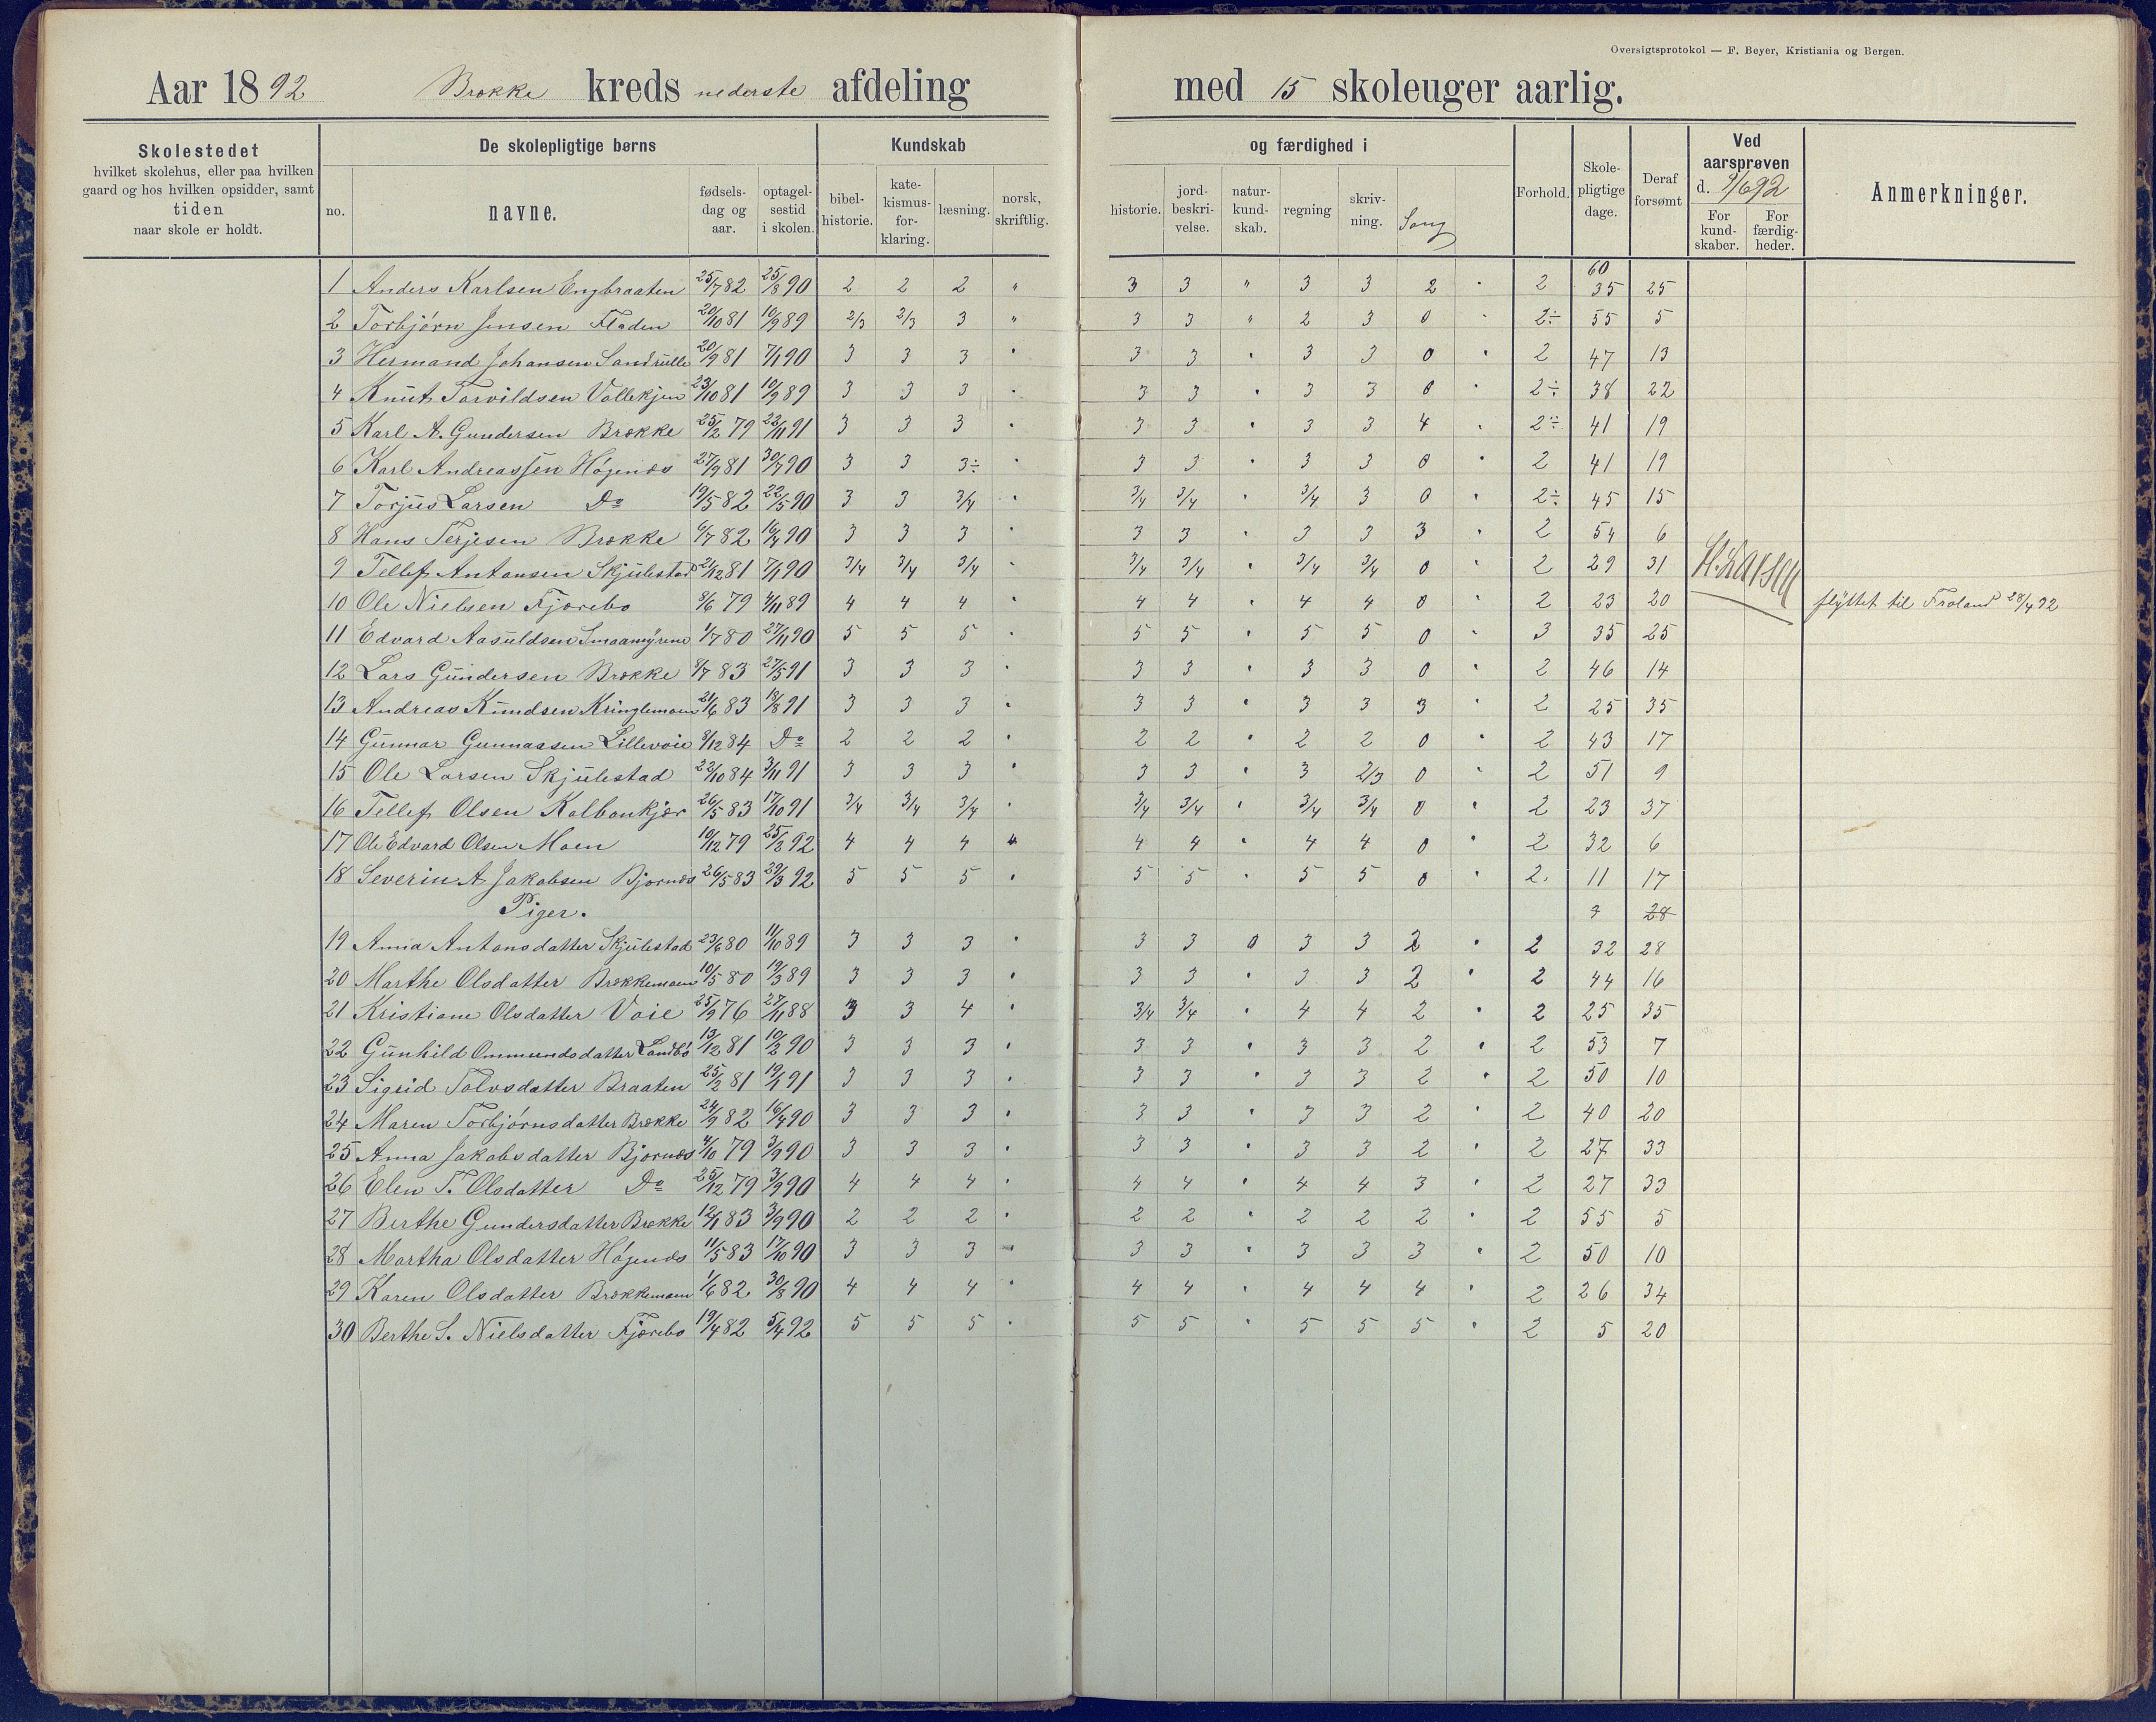 Oversigtsprotokol — F. Beyer, Kristiania og Bergen.
Aar 1892 Brække kreds nederste afdeling med 15 skoleuger aarlig.
Skolestedet
hvilket skolehus, eller paa hvilken
gaard og hos hvilken opsidder, samt
tiden
naar skole er holdt.
De skolepligtige børns
no. navne. fødsels-dag og aar. optagel-sestid i skolen.
Kundskab og færdighed i
bibel-historie. kate-kismus-for-klaring. læsning. norsk, skriftlig. historie. jord-beskri-velse. natur-kund-skab. regning skriv-ning. Sang
Forhold. Skole-pligtige dage. Deraf forsømt
Ved aarsprøven d. 9/6 92
For kund-skaber. For færdig-heder.
Anmerkninger.
60
1 Anders Karlsen Engbraaten 25/7 82 25/8 90 2 2 2 " 3 3 " 3 3 2 " 2 35 25
2 Torbjørn Jensen Fladen 20/10 81 10/9 89 2/3 2/3 3 " 3 3 " 2 3 0 " 2÷ 55 5
3 Hermand Johansen Sandrulle 20/9 81 7/1 90 3 3 3 " 3 3 " 3 3 0 " 2 47 13
4 Knut Torvildsen Vollekjen 23/10 81 10/9 89 3 3 3 " 3 3 " 3 3 0 " 2÷ 38 22
5 Karl A. Gundersen Brække 25/2 79 22/11 91 3 3 3 " 3 3 " 3 3 4 " 2÷ 41 19
6 Karl Andreassen Høgenæs 27/9 81 30/7 90 3 3 3÷ " 3 3 " 3 3 0 " 2 41 19
7 Torjus Larsen Do 19/5 82 22/5 90 3 3 3/4 " 3/4 3/4 " 3/4 3 0 " 2÷ 45 15
8 Hans Terjesen Brække 6/7 82 16/4 90 3 3 3 " 3 3 " 3 3 3 " 2 54 6
9 Tellef Antonsen Skjulestad 21/12 81 7/1 90 3/4 3/4 3/4 " 3/4 3/4 " 3/4 3/4 0 " 2 29 31 H. Larsen
10 Ole Nielsen Fjærebo 8/6 79 4/11 89 4 4 4 " 4 4 " 4 4 0 " 2 23 20 flyttet til Froland 28/4 92
11 Edvard Aasuldsen Smaamyrene 1/7 80 27/11 90 5 5 5 " 5 5 " 5 5 0 " 3 35 25
12 Lars Gundersen Brække 8/7 83 27/5 91 3 3 3 " 3 3 " 3 3 0 " 2 46 14
13 Andreas Knudsen Kringlemoen 21/6 83 18/8 91 3 3 3 " 3 3 " 3 3 3 " 2 25 35
14 Gunnar Gunnassen Lillevoie 8/12 84 Do 2 2 2 " 2 2 " 2 2 0 2 43 17
15 Ole Larsen Skjulestad 22/10 84 3/11 91 3 3 3 " 3 3 " 3 2/3 0 " 2 51 9
16 Tellef Olsen Kalbonkjær 26/5 83 17/10 91 3/4 3/4 3/4 " 3/4 3/4 " 3/4 3/4 0 " 2 23 37
17 Ole Edvard Olsen Moen 10/12 79 25/2 92 4 4 4 " 4 4 " 4 4 0 " 2 32 6
18 Severin A Jakobsen Bjørnæs 26/5 83 29/3 92 5 5 5 " 5 5 " 5 5 0 " 2. 11 17
Piger. 7 28
19 Anna Antonsdatter Skjulestad 23/6 80 11/10 89 3 3 3 " 3 3 0 3 3 2 " 2 32 28
20 Marthe Olsdatter Brækkemoen 10/5 80 19/3 89 3 3 3 " 3 3 " 3 3 2 " 2 44 16
21 Kristiane Olsdatter Voie 25/9 76 27/11 88 3 3 4 " 3/4 3/4 " 4 4 2 " 2 25 35
22 Gunhild Ommundsdatter Landbø 13/12 81 10/2 90 3 3 3 " 3 3 " 3 3 2 " 2 53 7
23 Sigrid Tolvsdatter Braaten 25/2 81 19/1 91 3 3 3 " 3 3 " 3 3 2 " 2 50 10
24 Maren Torbjørnsdatter Brække 24/9 82 16/4 90 3 3 3 " 3 3 " 3 3 2 " 2 40 20
25 Anna Jakobsdatter Bjørnæs 4/10 79 3/9 90 3 3 3 " 3 3 " 3 3 2 " 2 27 33
26 Elen T. Olsdatter Do 25/12 79 3/9 90 4 4 4 " 4 4 " 4 4 3 " 2 27 33
27 Berthe Gundersdatter Brække 12/1 83 3/9 90 2 2 2 " 2 2 " 2 2 2 " 2 55 5
28 Martha Olsdatter Høgenæs 11/5 83 17/10 90 3 3 3 " 3 3 " 3 3 3 " 2 50 10
29 Karen Olsdatter Brækkemoen 1/6 82 30/8 90 4 4 4 " 4 4 " 4 4 4 " 2 26 34
30 Berthe S. Nielsdatter Fjærebo 19/4 82 5/4 92 5 5 5 " 5 5 " 5 5 5 " 2 5 20